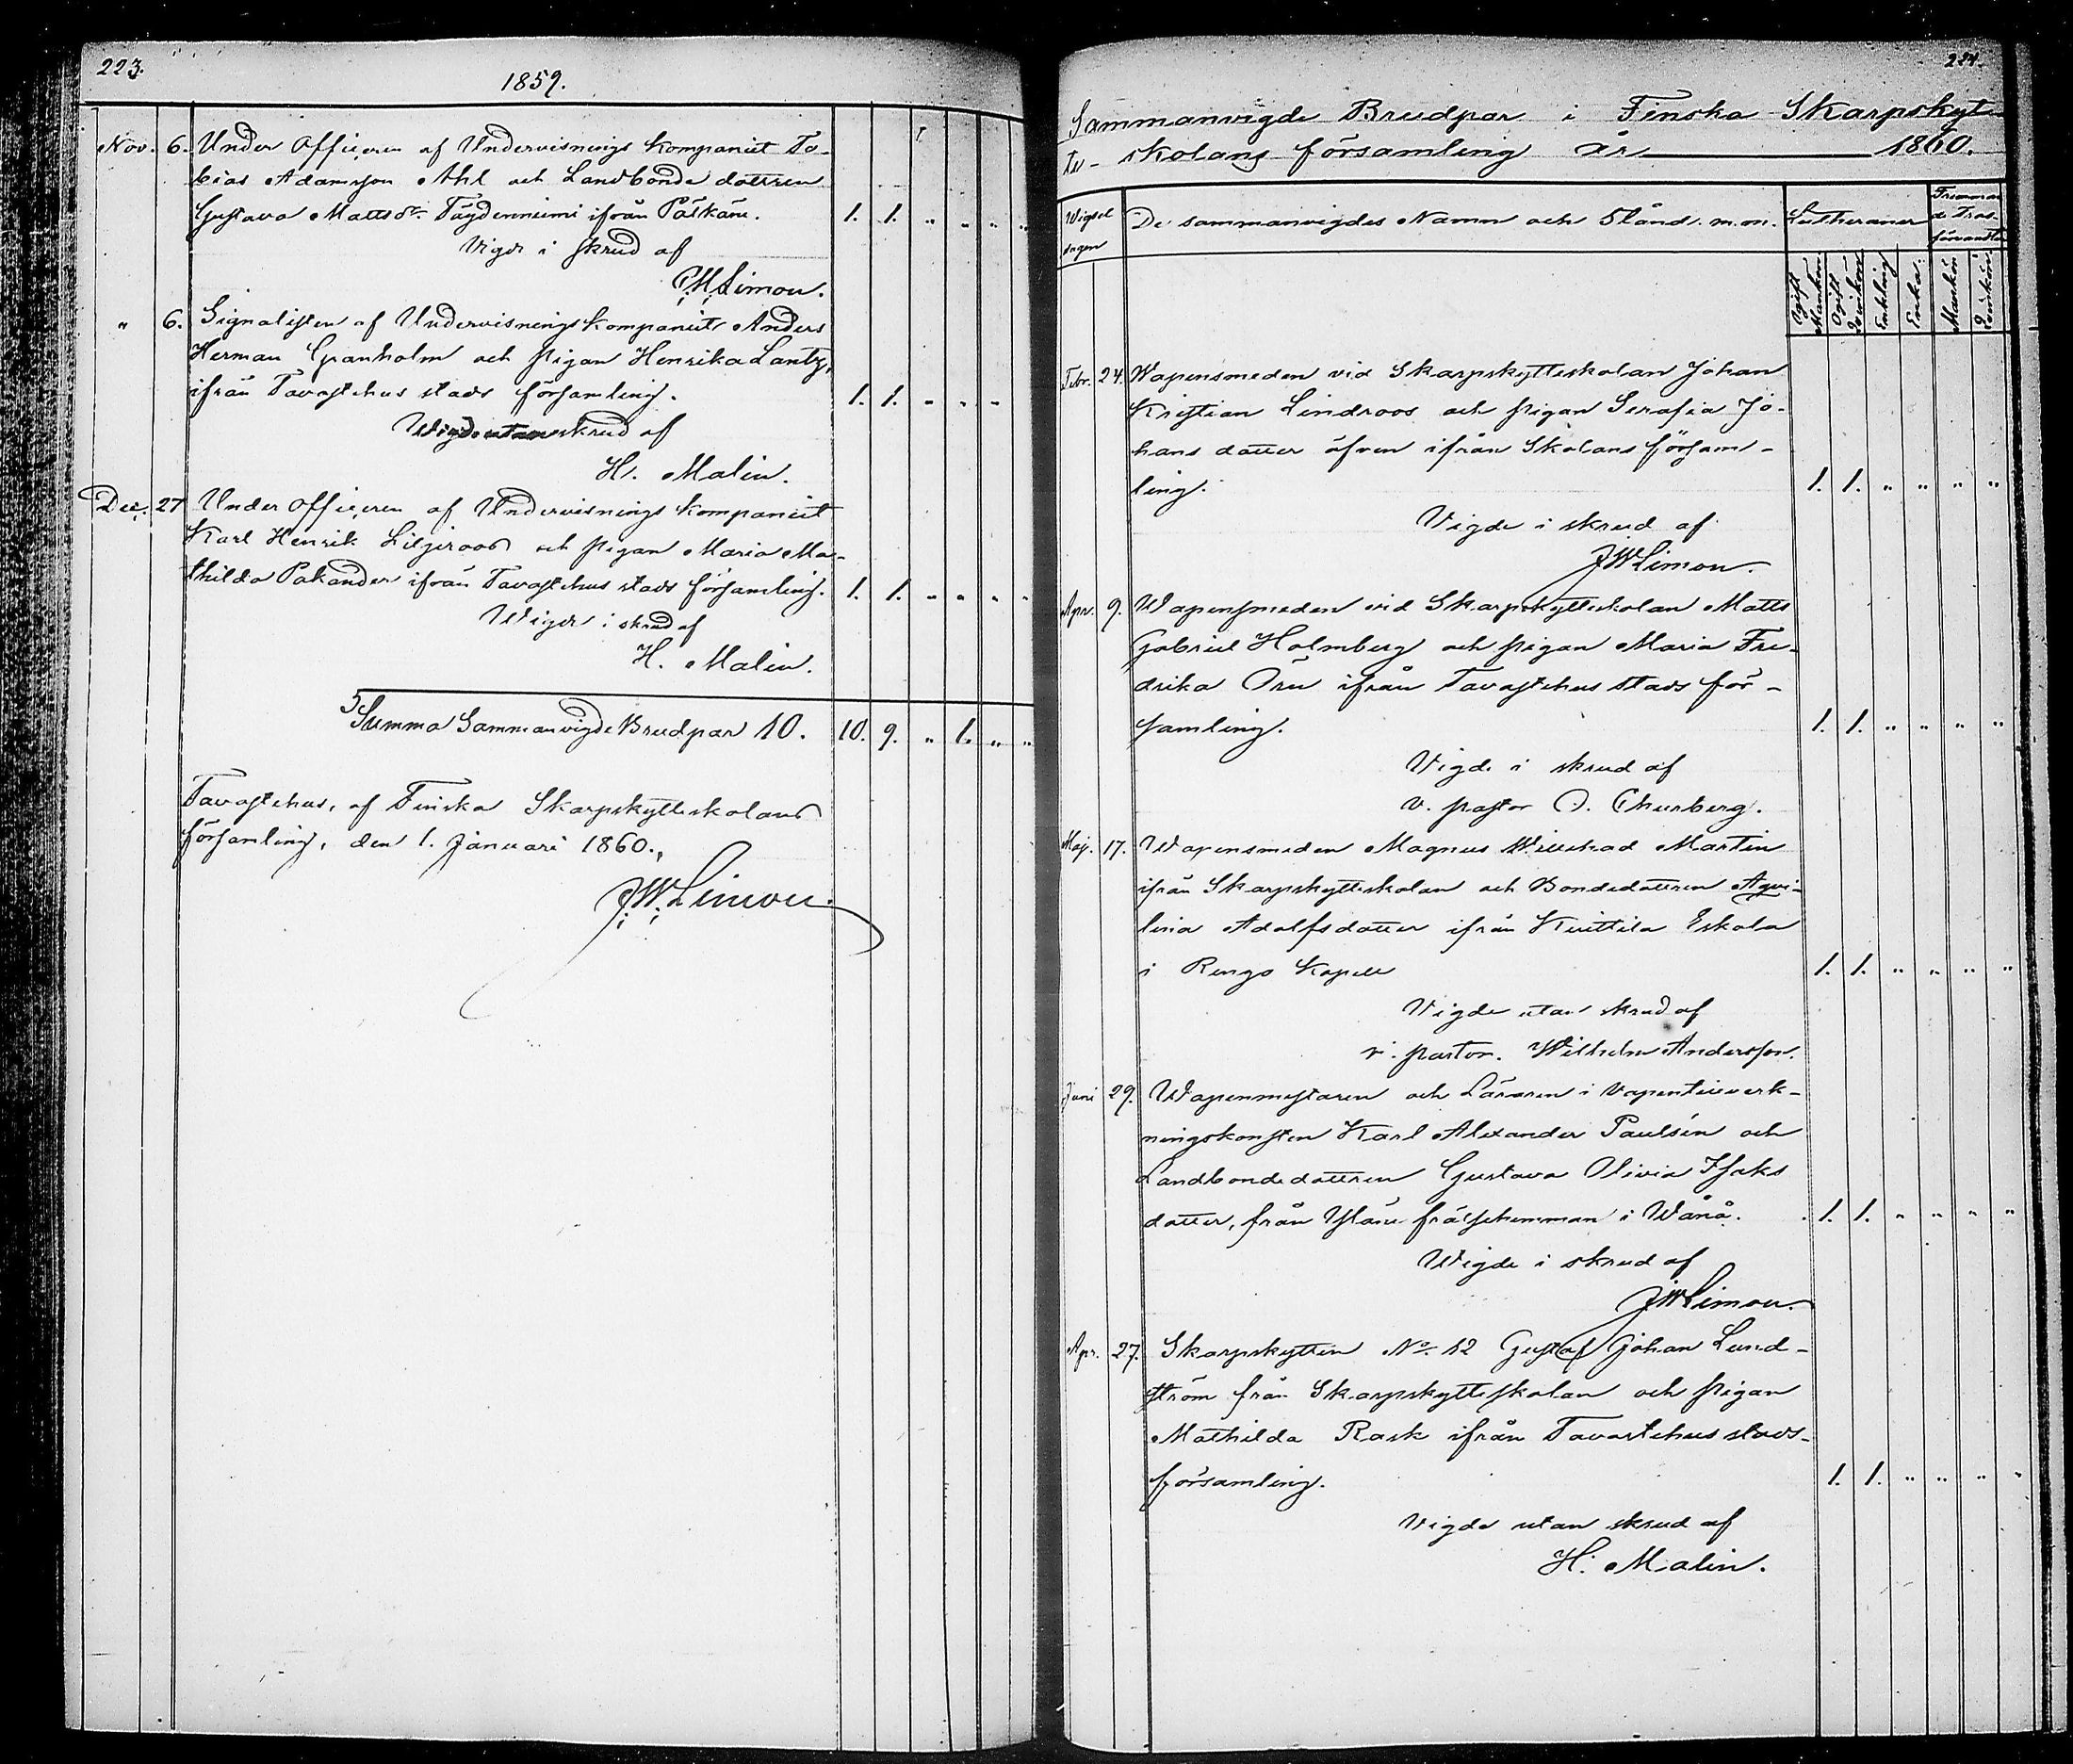 223.
1859.
Nov. 6. Under Officeren af Undervisnings Kompaniet To-
bias Adamsson Ahl och Landbonde dottren
Gustava Matts dr. Täydenniemi ifrån Pälkäne. 1. 1. " " " "
Vigde i skrud af
J.W.Limon.
" 6. Signalisten af Undervisnings Kompaniet Anders
Herman Granholm och pigan Henrika Lantz,
ifrån Tavastehus stads församling. 1. 1. " " "
Wigde utan skrud af
H. Malin.
Dec. 27 Under officeren af Undervisnings Kompaniet
Karl Henrik Liljeroos och pigan Maria Ma-
thilda Pakander ifrån Tavastehus stads församling. 1. 1. " " " "
Wigde i skrud af
H. Malin.
Summa Sammanvigde Brudpar 10. 10. 9. " 1. " "
Tavastehus, af Finska Skarpskytteskolans
församling, den 1. Januari 1860.,
J.W.Limon.
224.
Sammanvigde Brudpar i Finska Skarpskyt-
te- skolans församling År 1860.
Wigsel dagen
De sammanvigdes Namn och Stånd. m.m.
Lutheraner
Främman de Tros- förvandter
Ogift Mankön
Ogift Qvinkön
Enkling
Enka.
Mankön
Qvinkön
Febr. 24. Wapensmeden vid Skarpskytteskolan Johan
Kristian Lindroos och pigan Serafia Jo-
hans dotter äfven ifrån Skolans försam-
ling. 1. 1. " " " "
Vigde i skrud af
JWLimon.
Apr. 9. Wapensmeden vid Skarpskytteskolan Matts
Gabriel Holmberg och pigan Maria Fre-
drika Örn ifrån Tavastehus stads för-
samling. 1. 1. " " " "
Vigde i skrud af
v. pastor O. Churberg.
Maj. 17. Wapensmeden Magnus Willehad Martin
ifrån Skarpskytteskolan och Bondedottren Aqvi-
lina Adolfsdotter ifrån Kiuttila Eskola
i Rengo Kapell 1. 1. " " " "
Vigde utan skrud af
v. pastor. Wilhelm Andersson.
Juni 29. Wapenmestaren och Läraren i Vapentillverk-
ningskonsten Karl Alexander Paulsén och
Landbondedottren Gustava Olivia Isaks
dotter, från frälsehemman i Wånå. 1. 1. " " " "
Wigde i skrud af
JWLimon.
Apr. 27. Skarpskytten No. 12 Gustaf Johan Lund-
ström från Skarpskytteskolan och pigan
Mathilda Rask ifrån Tavastehus stads-
församling. 1. 1. " " " "
Vigde utan skrud af
H. Malin.